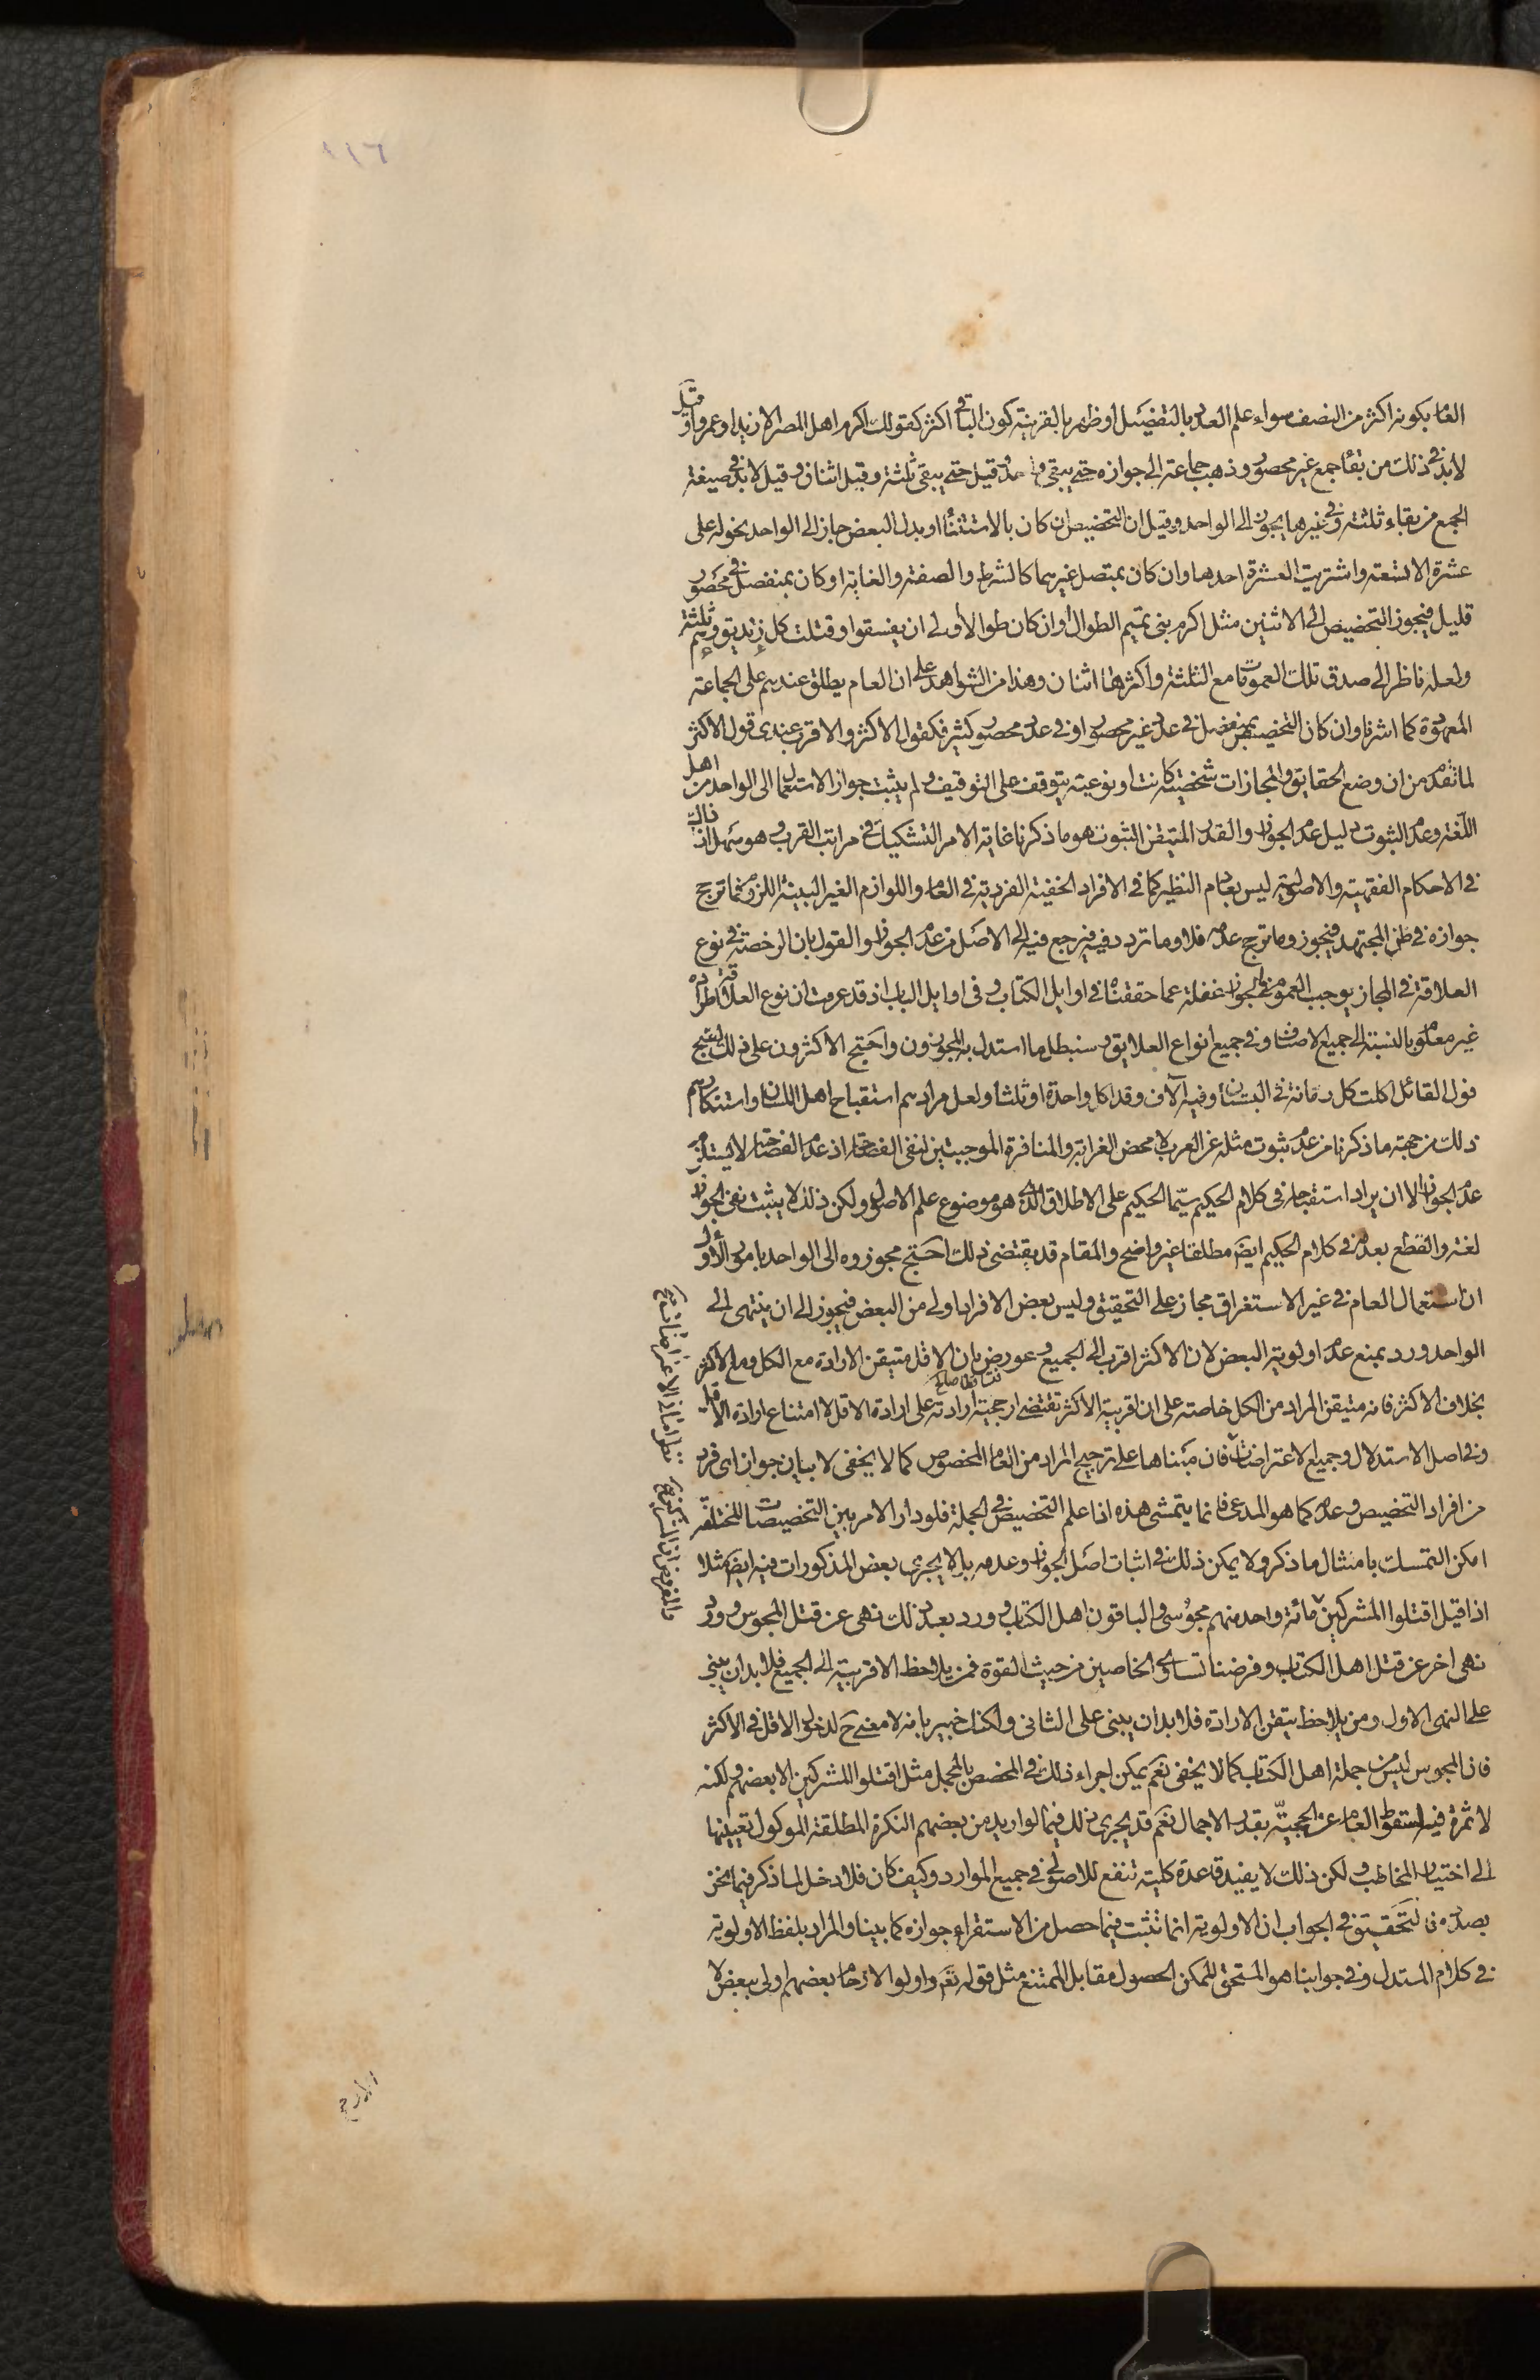 ١١٦
العام بكونه اكثر من النصف سواء علم العدد بالتفصيل او ظهر بالقرينة كون الباقي اكثر كقولك اكرم اهل المصر الا زيدا وعمروا وقيل
لا بد في ذلك من بقاء جمع غير محصور وذهب جماعة الى جوازه حتى يبقى واحد وقيل حتى يبقى ثلثة وقيل اثنان وقيل لا بد في صيغة
الجمع من بقاء ثلثة وفي غيرها يجوز الى الواحد وقيل ان التخصيص ان كان بالاستثناء او بدل البعض جاز الى الواحد نحو له على
عشرة الا تسعة واشتريت العشرة احدها وان كان بمتصل غيرهما كالشرط والصفة والغاية او كان بمنفصل في محصور
قليل فيجوز التخصيص الى الاثنين مثل اكرم بني تميم الطوال او ان كان طوالا او الى ان يفسقوا وقتلت كل زنديق وهم ثلثة
ولعله ناظر الى صدق تلك العمومات مع الثلثة واكثرها اثنان وهذا من الشواهد على ان العام يطلق عندهم على الجماعة
المعهودة كما اشرنا وان كان التخصيص بمنفصل في عدد غير محصور او في عدد محصور كثير فكقول الاكثر والاقرب عندى قول الاكثر
لما تقدم من ان وضع الحقايق والمجازات شخصية كانت او نوعية يتوقف على التوقيف ولم يثبت جواز الاستعمال الى الواحد من اهل
اللغة وعدم الثبوت دليل عدم الجواز والقدر المتيقن الثبوت هو ما ذكرنا غاية الامر التشكيك في مراتب القرب وهو سهل اذ ذلك
في الاحكام الفقهية والاصولية ليس بعادم النظير كما في الافراد الخفية الفردية في العام واللوازم الغير البينة اللزوم فما ترجح
جوازه في ظن المجتهد فيجوز وما ترجح عدمه فلا وما تردد فيه فيرجع فيه الى الاصل من عدم الجواز والقول بان الرخصة في نوع
العلاقة في المجاز يوجب العموم في الجواز غفلة عما حققناه في اوايل الكتاب وفى اوايل الباب اذ قد عرفت ان نوع العلاقة اطراده
غير معلوم بالنسبة الى جميع الاصناف وفي جميع انواع العلايق وسنبطل ما استدل به المجوزون واحتج الاكثرون على ذلك بقبح
قول القائل اكلت كل رمانة في البستان وفيه آلاف وقد اكل واحدة او ثلثا ولعل مرادهم استقباح اهل اللسان واستنكارهم
ذلك من جهة ما ذكرنا من عدم ثبوت مثله عن العرب لا محض الغرابة والمنافرة الموجبتين لنفى الفصاحة اذ عدم الفصاحة لا يستلزم
عدم الجواز الا ان يراد استقباحه فى كلام الحكيم سيّما الحكيم على الاطلاق الذي هو موضوع علم الاصول ولكن ذلك لا يثبت نفى الجواز
لغة والقطع بعدمه في كلام الحكيم ايضَ مطلقا غير واضح والمقام قد يقتضى ذلك احتج مجوزوه الى الواحد بامور الأول
ان استعمال العام في غير الاستغراق مجاز على التحقيق وليس بعض الافراد اولى من البعض فيجوز الى ان ينتهى الى
الواحد ورد بمنع عدم اولوية البعض لان الاكثر اقرب الى الجميع وعورض بان الاقل متيقن الارادة مع الكل ومع الاكثر
بخلاف الاكثر فانه متيقن المراد من الكل خاصة على ان اقربية الاكثر تقتضى ارجحية ارادته على ارادة الاقل لا امتناع ارادة الاقل
وفي اصل الاستدلال وجميع الاعتراضات فان مبناها على ترجيح المراد من العام المخصوص كما لا يخفى لا بيان جواز اى فرد
من افراد التخصيص وعدمه كما هو المدعى فانما يتمشى هذه اذا علم التخصيص في الجملة فلو دار الامر بين التخصيصات المختلفة
امكن التمسك بامثال ما ذكر ولا يمكن ذلك في اثبات اصل الجواز وعدمه بل لا يجرى بعض المذكورات فيه ايضَ مثلا
اذا قيل اقتلوا المشركين مائة واحد منهم مجوسى والباقون اهل الكتاب وورد بعد ذلك نهى عن قتل المجوس وورد
نهى اخر عن قتل اهل الكتاب وفرضنا تساوي الخاصين من حيث القوة فمن يلاحظ الاقربية الى الجميع فلا بد ان يبني
على النهى الاول ومن يلاحظ تيقن الارادة فلا بد ان يبنى على الثانى ولكنك خبير بانه لا معنى ح لدخول الاقل في الاكثر
فان المجوس ليس من جملة اهل الكتاب كما لا يخفى نعم يمكن اجراء ذلك في المخصص بالمجمل مثل اقتلوا المشركين الا بعضهم ولكنه
لا ثمرة فيه لسقوط العام عن الحجيّة بقدر الاجمال نعم قد يجرى ذلك فيما لو اريد من بعضهم النكرة المطلقة الموكول تعيينها
الى اختيار المخاطب ولكن ذلك لا يفيد قاعدة كلية تنفع للاصولي في جميع الموارد وكيف كان فلا دخل لما ذكر فيما نحن
بصدده فالتحقيق في الجواب ان الاولوية انما تثبت فيما حصل من الاستقراء جوازه كما بينا والمراد بلفظ الاولوية
في كلام المستدل وفي جوابنا هو المستحق للممكن الحصول مقابل الممتنع مثل قوله تعَم واولوا الارحام بعضهم اولى ببعض لا
الارجح